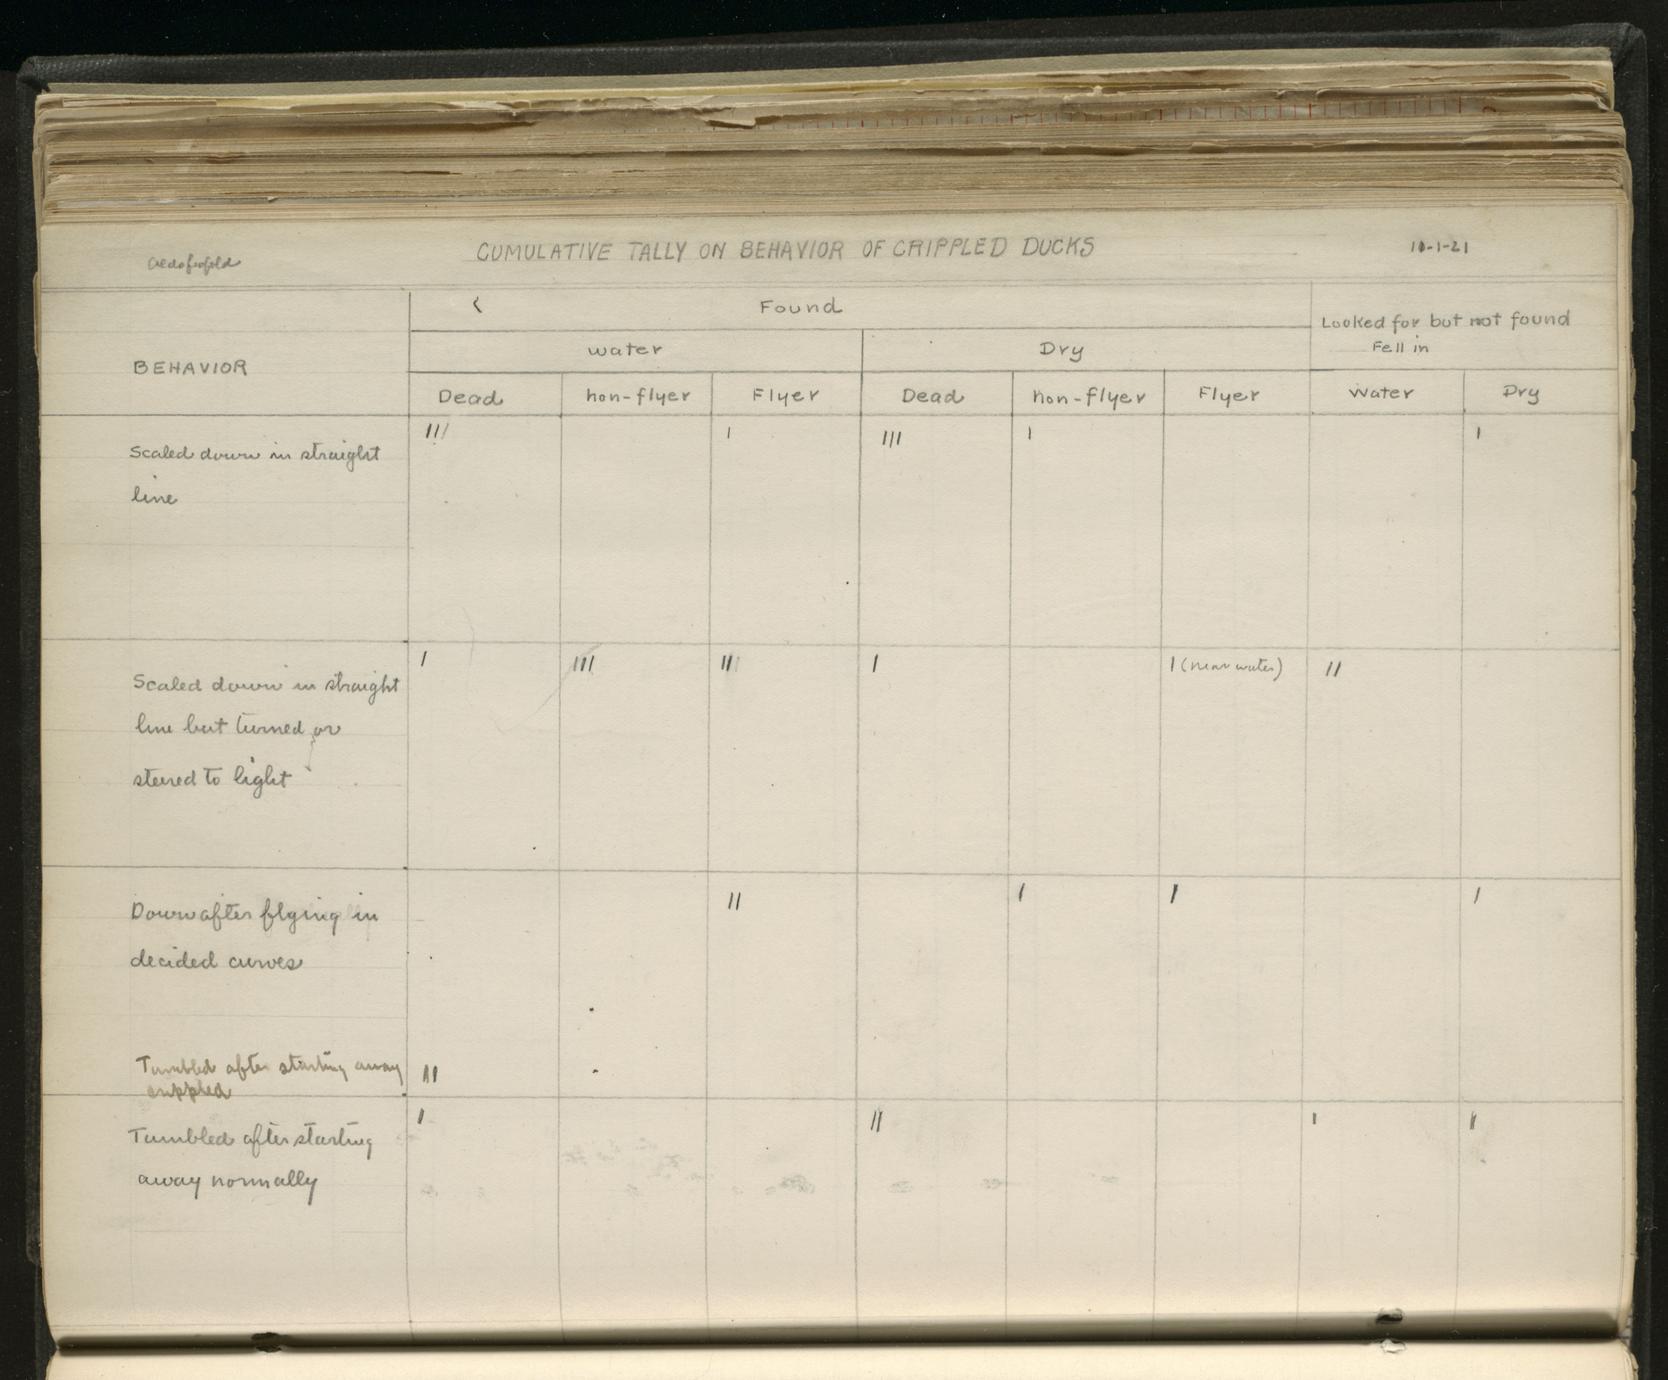 CUMULATIVE TALLY ON BEHAVIOR OF CRIPPLED DUCKS 10-1-21
Found
Looked for but not found
Fell in
BEHAVIOR
water Dry
Dead non-flyer Flyer Dead non-flyer Flyer Water Dry
Scaled down in straight
line
III I III I I
Scaled down in straight
line but turned or
steered to light
I III III I I (near water) II
Down after flying in
decided curves
II I I I
Tumbled after starting away
crippled
II
Tumbled after starting
away normally
I II I II